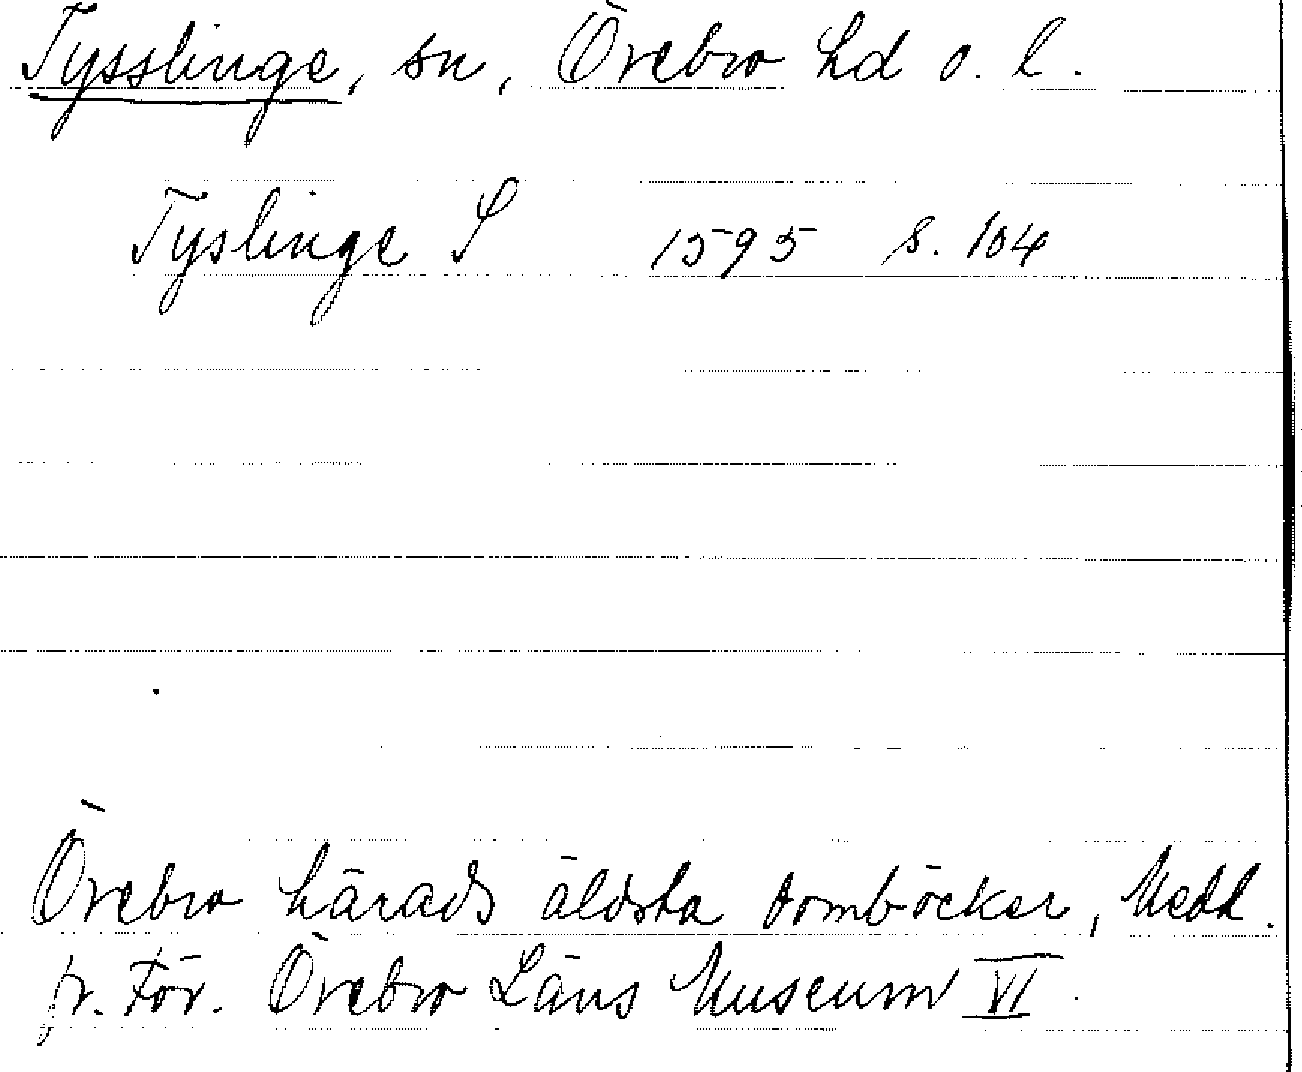 Tysslinge, sn, Örebro hd o. l.
Tyslinge S 1595 s. 104
Örebro härads äldsta domböcker, Medd.
fr. För. Örebro Läns Museum VI